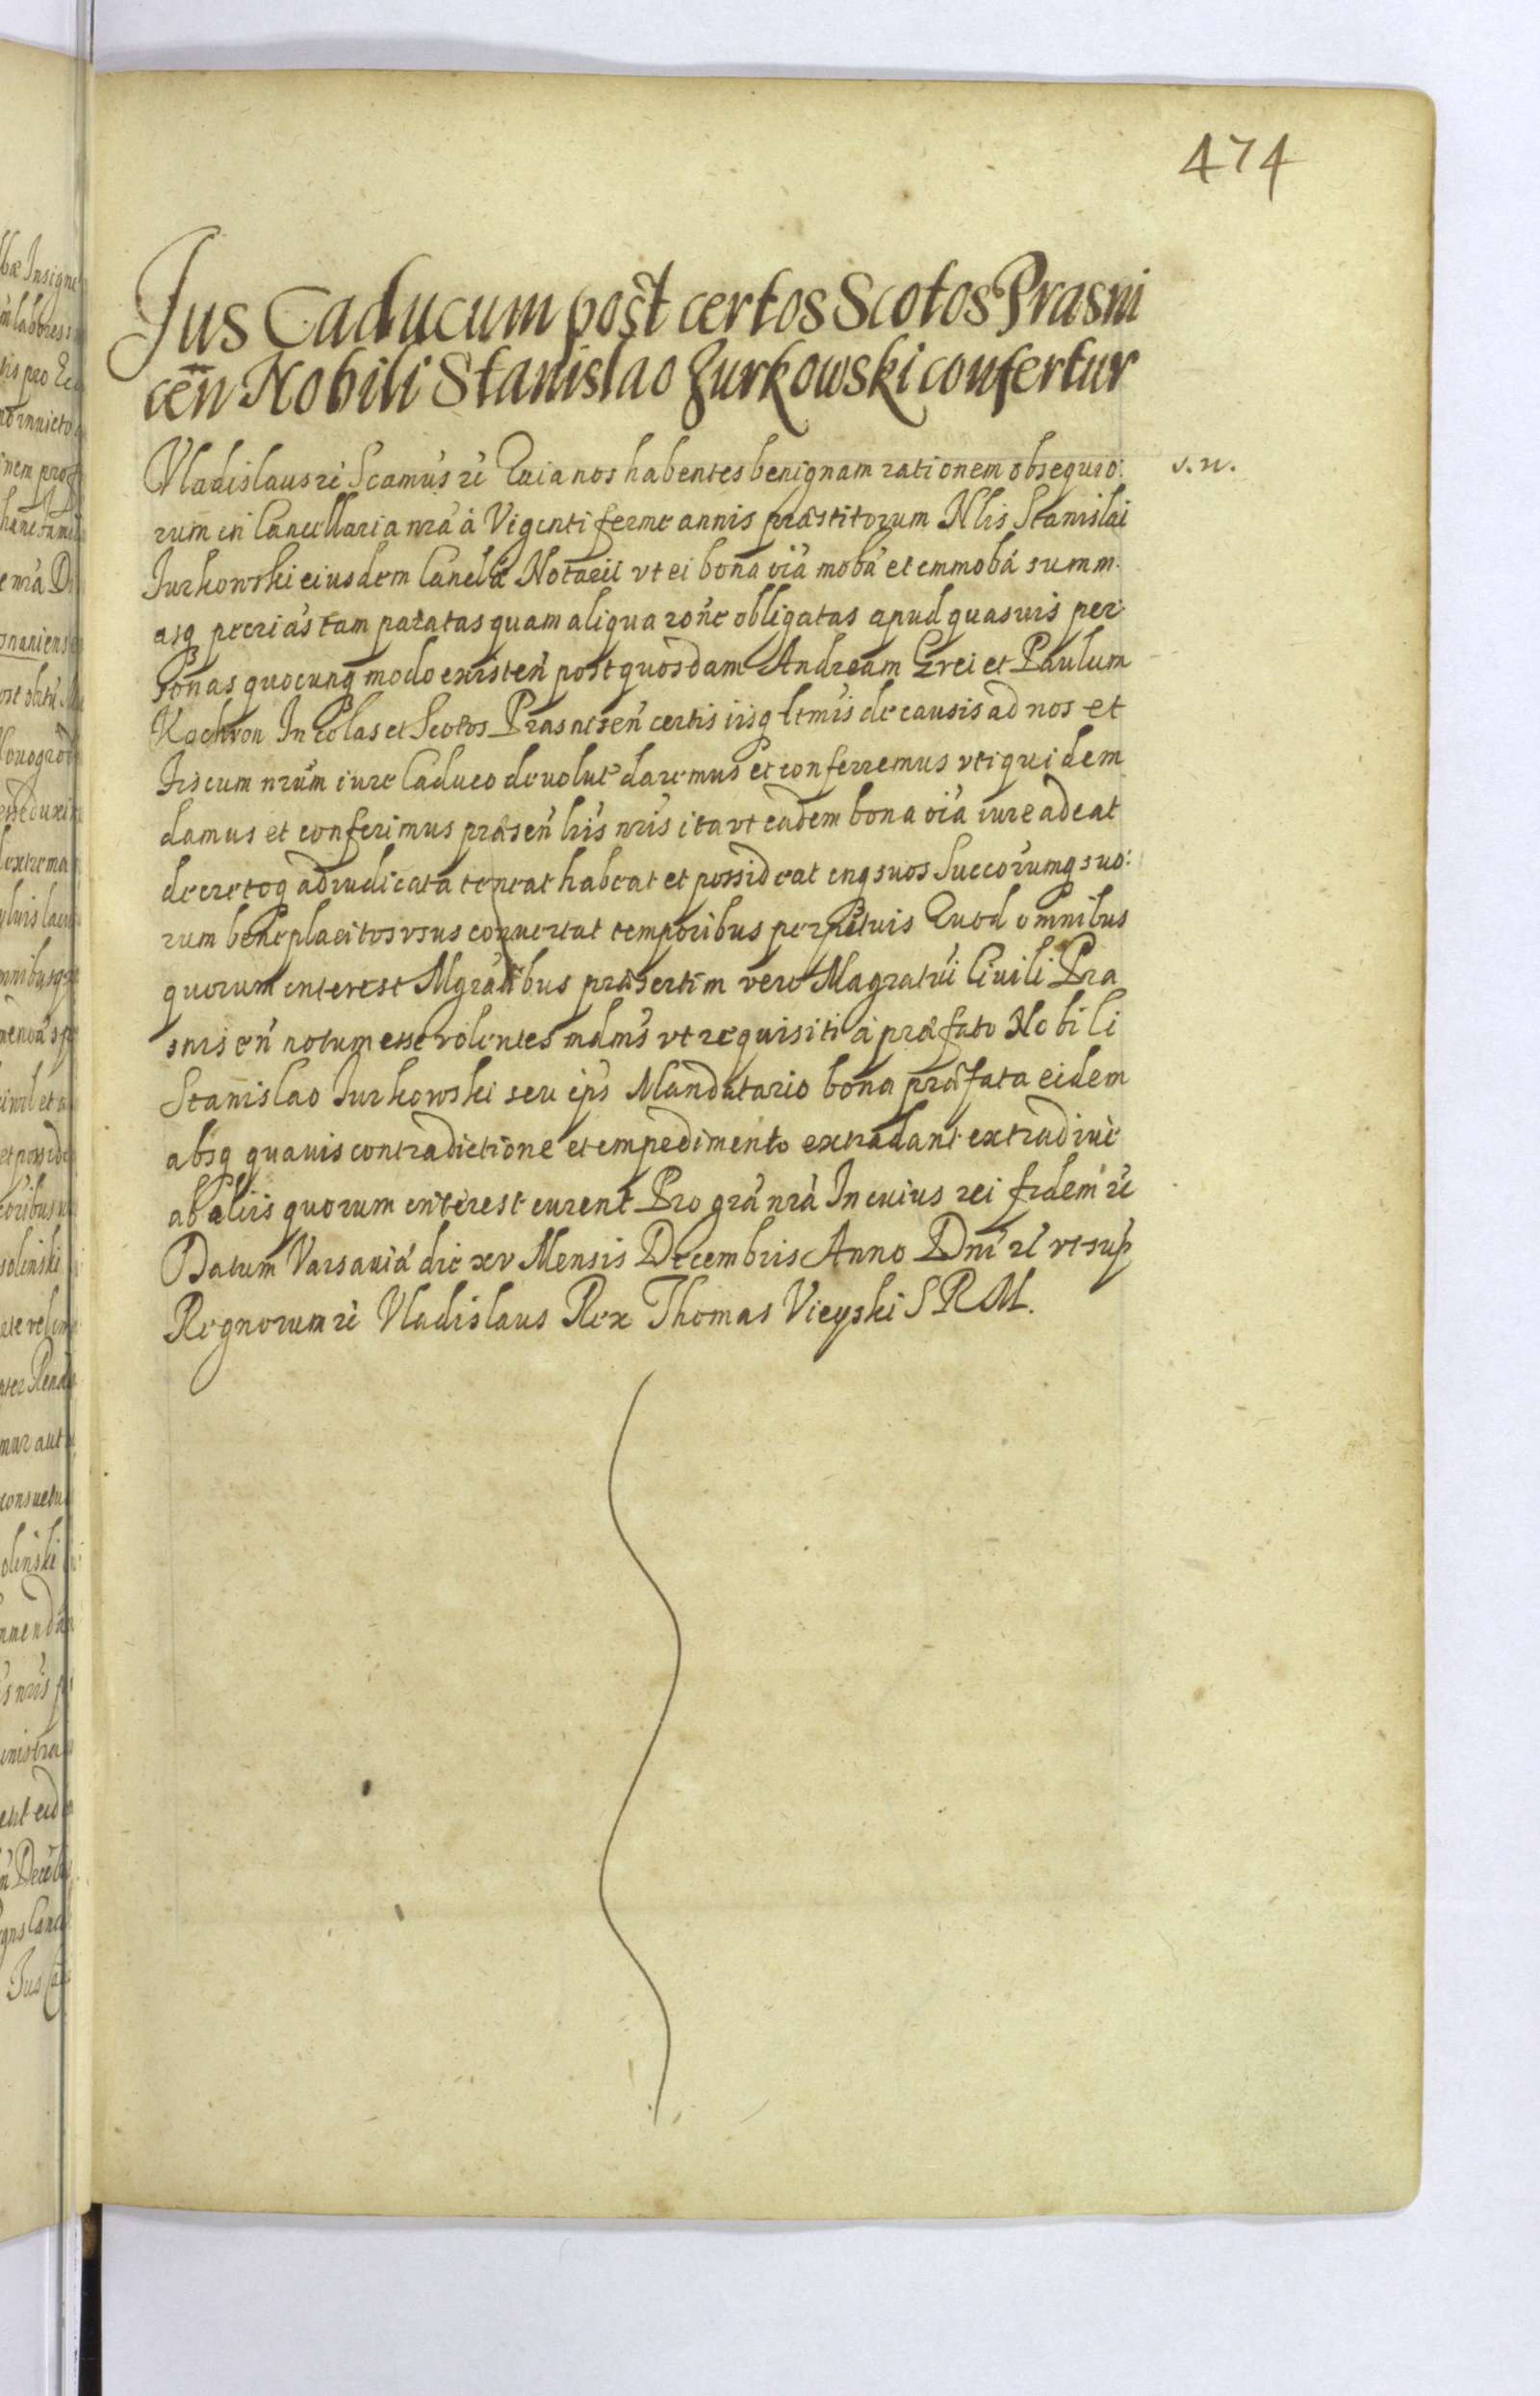 474
Jus Caducum post certos Scotos Prasni
cen̄ Nobili Stanislao Zurkowski confertur
Vladislaus &c Scamus &c Quia nos habentes benignam rationem obsequio: s. n.
rum in Cancellaria nrá à Viginti ferme annis præstitorum Nlis Stanislai
Zurkowski eiusdem Cancelæ Notarii vt ei bona oiá mobá et immobá summ:
asq pecriás tam paratas quam aliqua roñe obligatas apud quasuis per
sonas quocunq modo existeń post quosdam Andream Grei et Paulum
Kochron Incolas et Scotos Prasnenseń certis iisq ltmis de causis ad nos et
fiscum nrum iure Caduco devolut daremus et conferremus vti quidem
damus et conferimus præseń lris nris ita vt eadem bona oiá iure adeat
decretoq adiudicata teneat habeat et possideat inq suos Succorumq suo:
rum beneplacitos vsus convertat temporibus perpetuis Quod omnibus
quorum interest Mgratibus præsertim vero Magratui Ciuili Pra
snis eń notum esse volentes mdms vt requisiti à præfato Nobili
Stanislao Zurkowski seu ips Mandatario bona præfata eidem
absq quauis contradictione et impedimento extradant extradiue
ab aliis quorum interest curent Pro gra nrá In cuius rei fidem &c
Datum Varsauiæ die xv Mensis Decembris Anno Dni &c vt sup
Regnorum &c Vladislaus Rex Thomas Vieyski S R M.